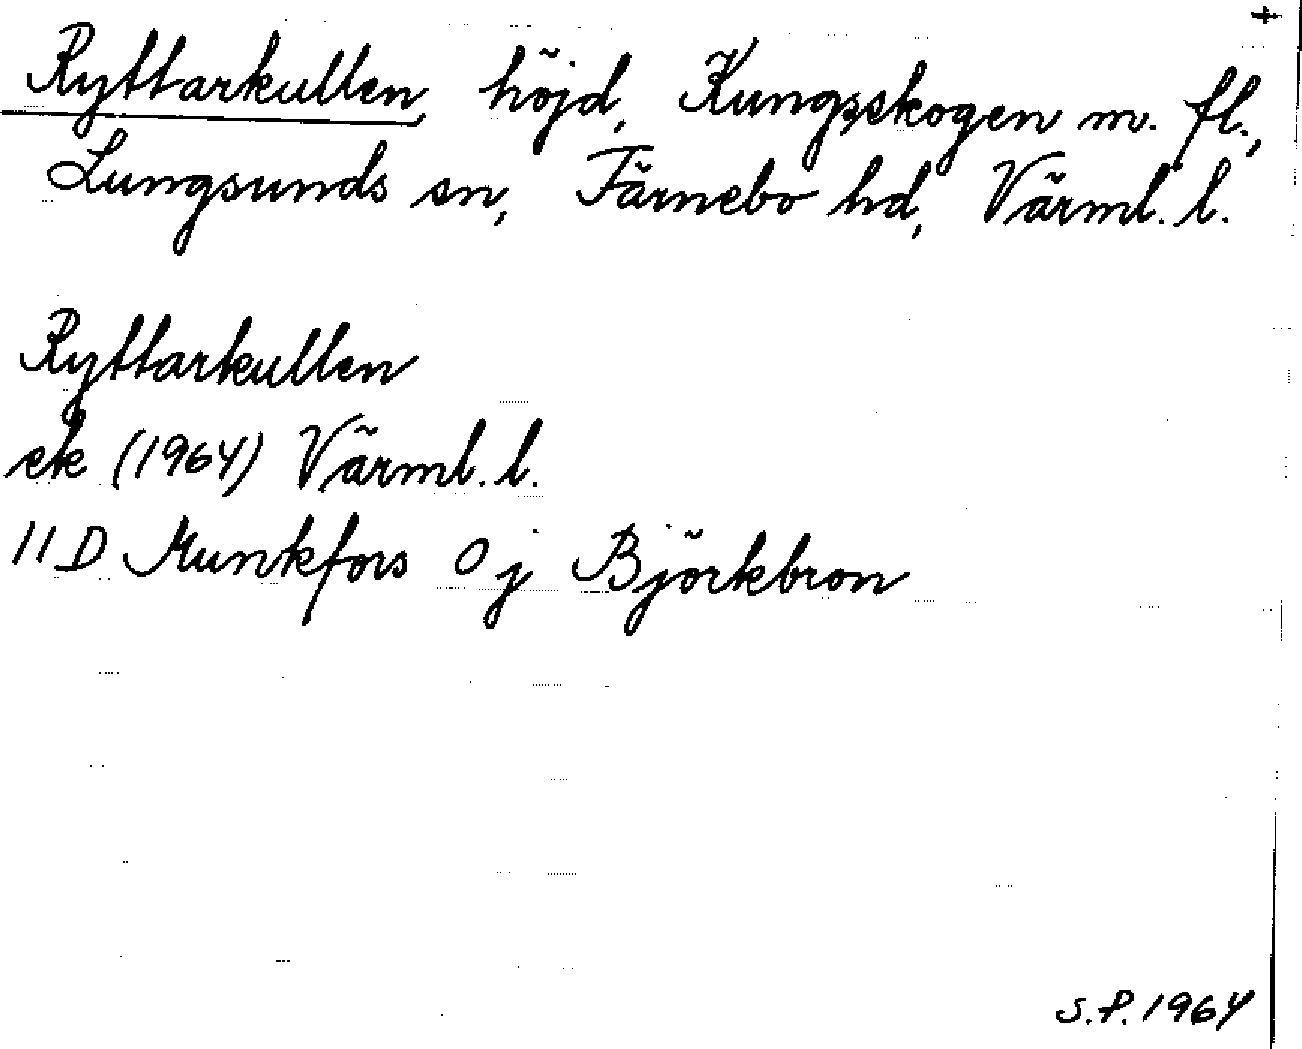 +
Ryttarkullen, höjd, Kungsskogen m. fl.,
Lungsunds sn, Färnebo hd, Värml. l.
Ryttarkullen
ek (1964) Värml. l.
11 D Munkfors 0 j Björkbron
S.P. 1964